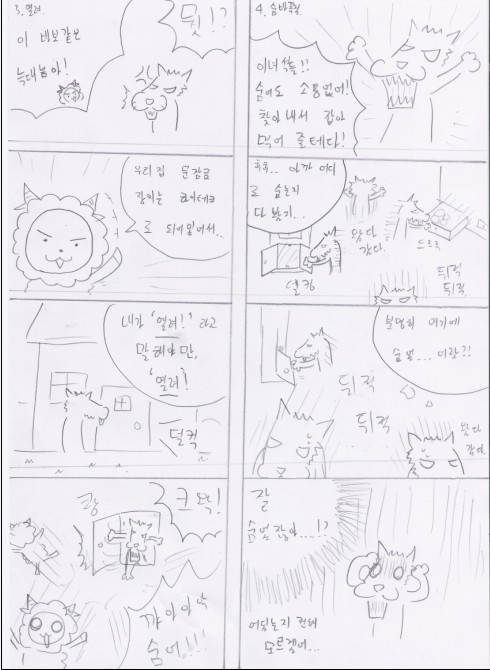 3. 열려.
이 바보같은
늑대놈아!
뭣!?
우리집 문잠금
장치는 하이테크
로 되어있어서..
내가 '열려!' 라고
말해야만,
'열려!
덜컥
쾅
크왁!
꺄아아악
숨어!!!
4. 숨바꼭질.
이녀석들!!
숨어도 소용없어!
찾아내서 잡아
먹어 줄테다!
후후.. 아까 어디
로 숨는지
다 봤지..
왔다
갔다.
드르륵
덜컹
뒤적
뒤적.
분명히 여기에
숨었... 어라?!
뒤적
뒤적
왔다
갔다
잘
숨었잖아...!?
어딨는지 전혀
모르겠어...